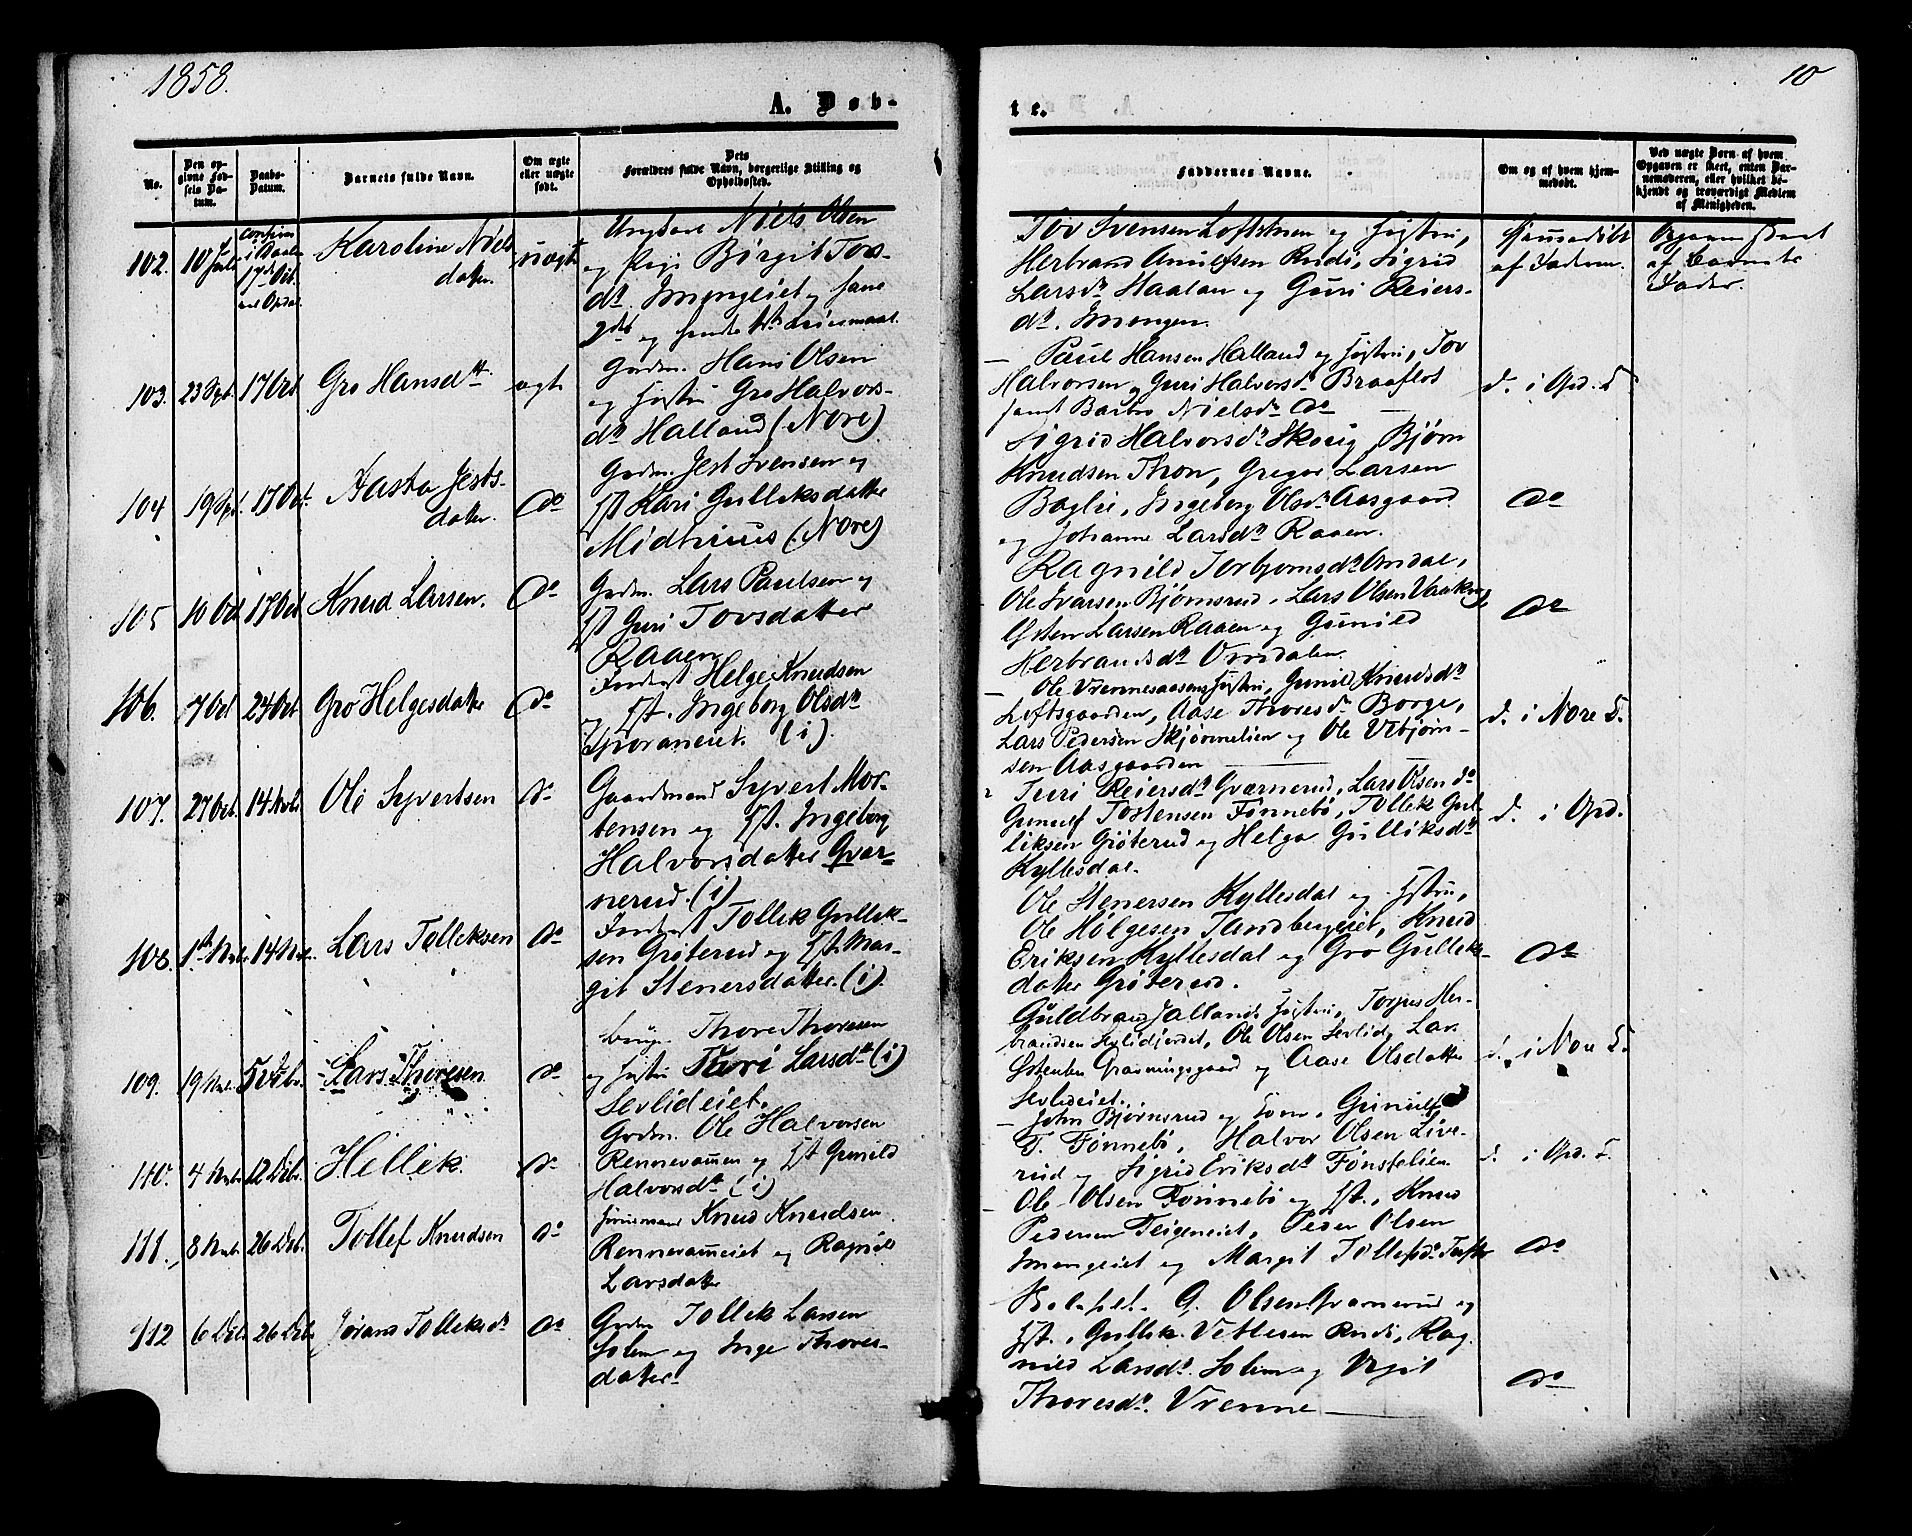 1858.
10
A. Døb-
te.
No.
Den op-
givne Fød-
sels Da-
tum.
Daabs-
Datum.
Barnets fulde Navn.
Om ægte
eller uægte
født.
Dets
Forældres fulde Navn, borgerlige Stilling og
Opholdssted.
Faddernes Navne.
Om og af hvem hjem-
medøbt.
Ved uægte Børn af hvem
Opgaven er skeet, enten Bar-
nemoderen, eller hvilket be-
kjendt og troværdigt Medlem
af Menigheden.
102. 10 Juli
17de Oct.
Karoline Niels
datter
uægt
Ungkarl Niels Olsen
og Pige Birgit Tors-
dr. Imingeiet, hans
2det og hendes 1ste Leiermaal
Tov Svensen Loftstuen og Hustru,
Herbrand Rudi, Sigrid
Larsdr Haalan og Guri Reiers-
dr. Imengen.
Hjemmedøbt
af Faderen
af Barnets
Fader.
103. 23 Spt. 17 Oct Gro Hansdtt. ægt
Gaardm. Hans Olsen
og Hustru Gro Halvors-
dr Halland (Nore)
Paul Hansen Halland og Hustru, Tov
Halvorsen, Guri Halvorsdr Braaflot
samt Barbro Nielsdr do
d. i Opd. K
104 19 Spt. 17 Oct. Aasta Jests-
datter. do
Gaardm. Jest Svensen og
Hst Kari Gulleksdatter
Midthuus (Nore)
Sigrid Halvorsdr Skarig, Bjørn
Knudsen Thon, Gregar Larsen
Baglie, Ingeborg Olsdr Aasgaard
og Johanne Larsdr Raaen.
do
105 10 Oct 17 Oct Knud Larsen. do
Gaardm. Lars Paulsen og
Hst Guri Tovsdatter
Raaen
Ragnild Torbjornsdr Omdal,
Ole Ivarsen Bjørnsrud, Lars Olsen
Østen Larsen Raaen og Gunild
Herbrandsdr Omdalen.
do
106. 7 Oct 24 Oct Gro Helgesdatter do
Helge Knudsen
og Hst. Ingeborg Olsdr
Sporaneiet. (i)
Ole Vrenneaasen Hustru, Gunild Knudsdr
Loftsgaarden, Aase Thoresdr Borge,
Lars Pedersen Skjønnelien og Ole Vebjørn-
sen Aasgaarden
d. i Nore K.
107. 27 Oct. 14 Nvbr. Ole Syvertsen do
Gaardmand Syvert Mor-
tensen og Hst. Ingeborg
Halvorsdatter Qvær-
nerud. (i)
Turi Reiersdr Qværnerud, Lars Olsen do
Gunulf Tostensen Fønnebø, Tollek Gul-
liksen Grøterud og Helga Gulliksdr
Kyllesdal.
d. i Opd.
108. 1ste Nvbr 14 Nvbr. Lars Tolleksen do
Tollek Gullek-
sen Grøterud og Hst. Mar-
git Stenersdatter. (i)
Ole Stenersen Kyllesdal og Hstru,
Ole Helgesen Tandbergeiet, Knud
Eriksen Kyllesdal og Gro Gulleks-
datter Grøterud.
do
109. 19 Nvbr. 5 Dcbr. Lars Thoresen do
Thore Thoresen
og Hustru Turi Larsdtt (i)
Sevlideiet.
Guldbrand Jalland Hustru, Torjus Her-
brandsen Sevlidjordet, Ole Olsen Sevlid, Lars
Gravningsgaard og Aase Olsdatter
Sevlideiet.
d. i Nore K.
110. 4 Nvbr 12 Debr. Hellek. do
Gaardm. Ole Halvorsen
Rennevammen og Hst Gunild
Halvorsdtr (i)
John Bjørnsrud og Kone, Gunulf
T. Fønnebø, Halvor Olsen Live-
rud og Sigrid Eriksdr Fønstelien
d. i Opd. K.
111. 8 Nvbr. 26 Debr. Tollef Knudsen do
Huusmand Knud Knudsen
Rennevammeiet og Ragnild
Larsdatter
Ole Olsen Fønnebø og Hst., Knud
Pedersen Teigeneiet, Peder Olsen
Imengeiet og Margit Tollefsdr
do
112 6 Debr 26 Debr. Jørand Tolleksdr do
Gaardm Tollek Larsen
Solem og Inge Thores-
datter.
G. Olsen Qværnerud og
Hst., Gullek Vetlesen Rudi, Rag-
nild Larsdr. Solem og Birgit
Thoresdr. Vrenne
do